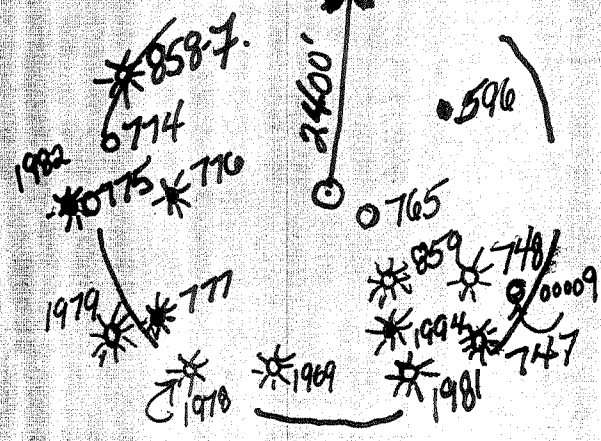 858-7.
2400'
.596
774
1982
775
776
765
859
748
00009
1979
777
1994
747
1969
1981
1978